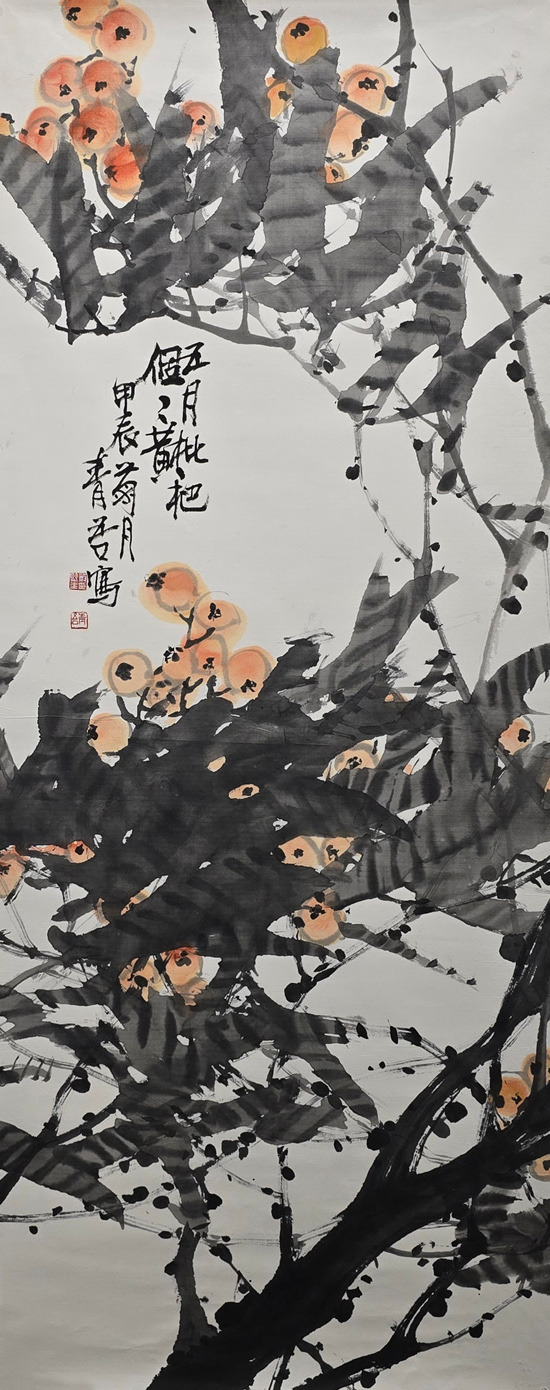 五月枇杷
個〻黃
甲辰菊月
青 寫